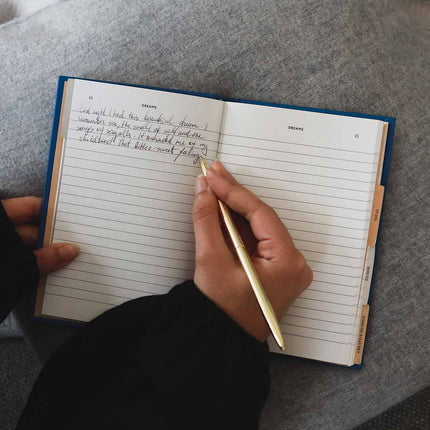 DREAMS
Last night I had this beautiful dream. I
remember sea, the sound of waves and the
songs of seagulls. It reminded me of my
childhood. That bitter-sweet feeling
DREAMS